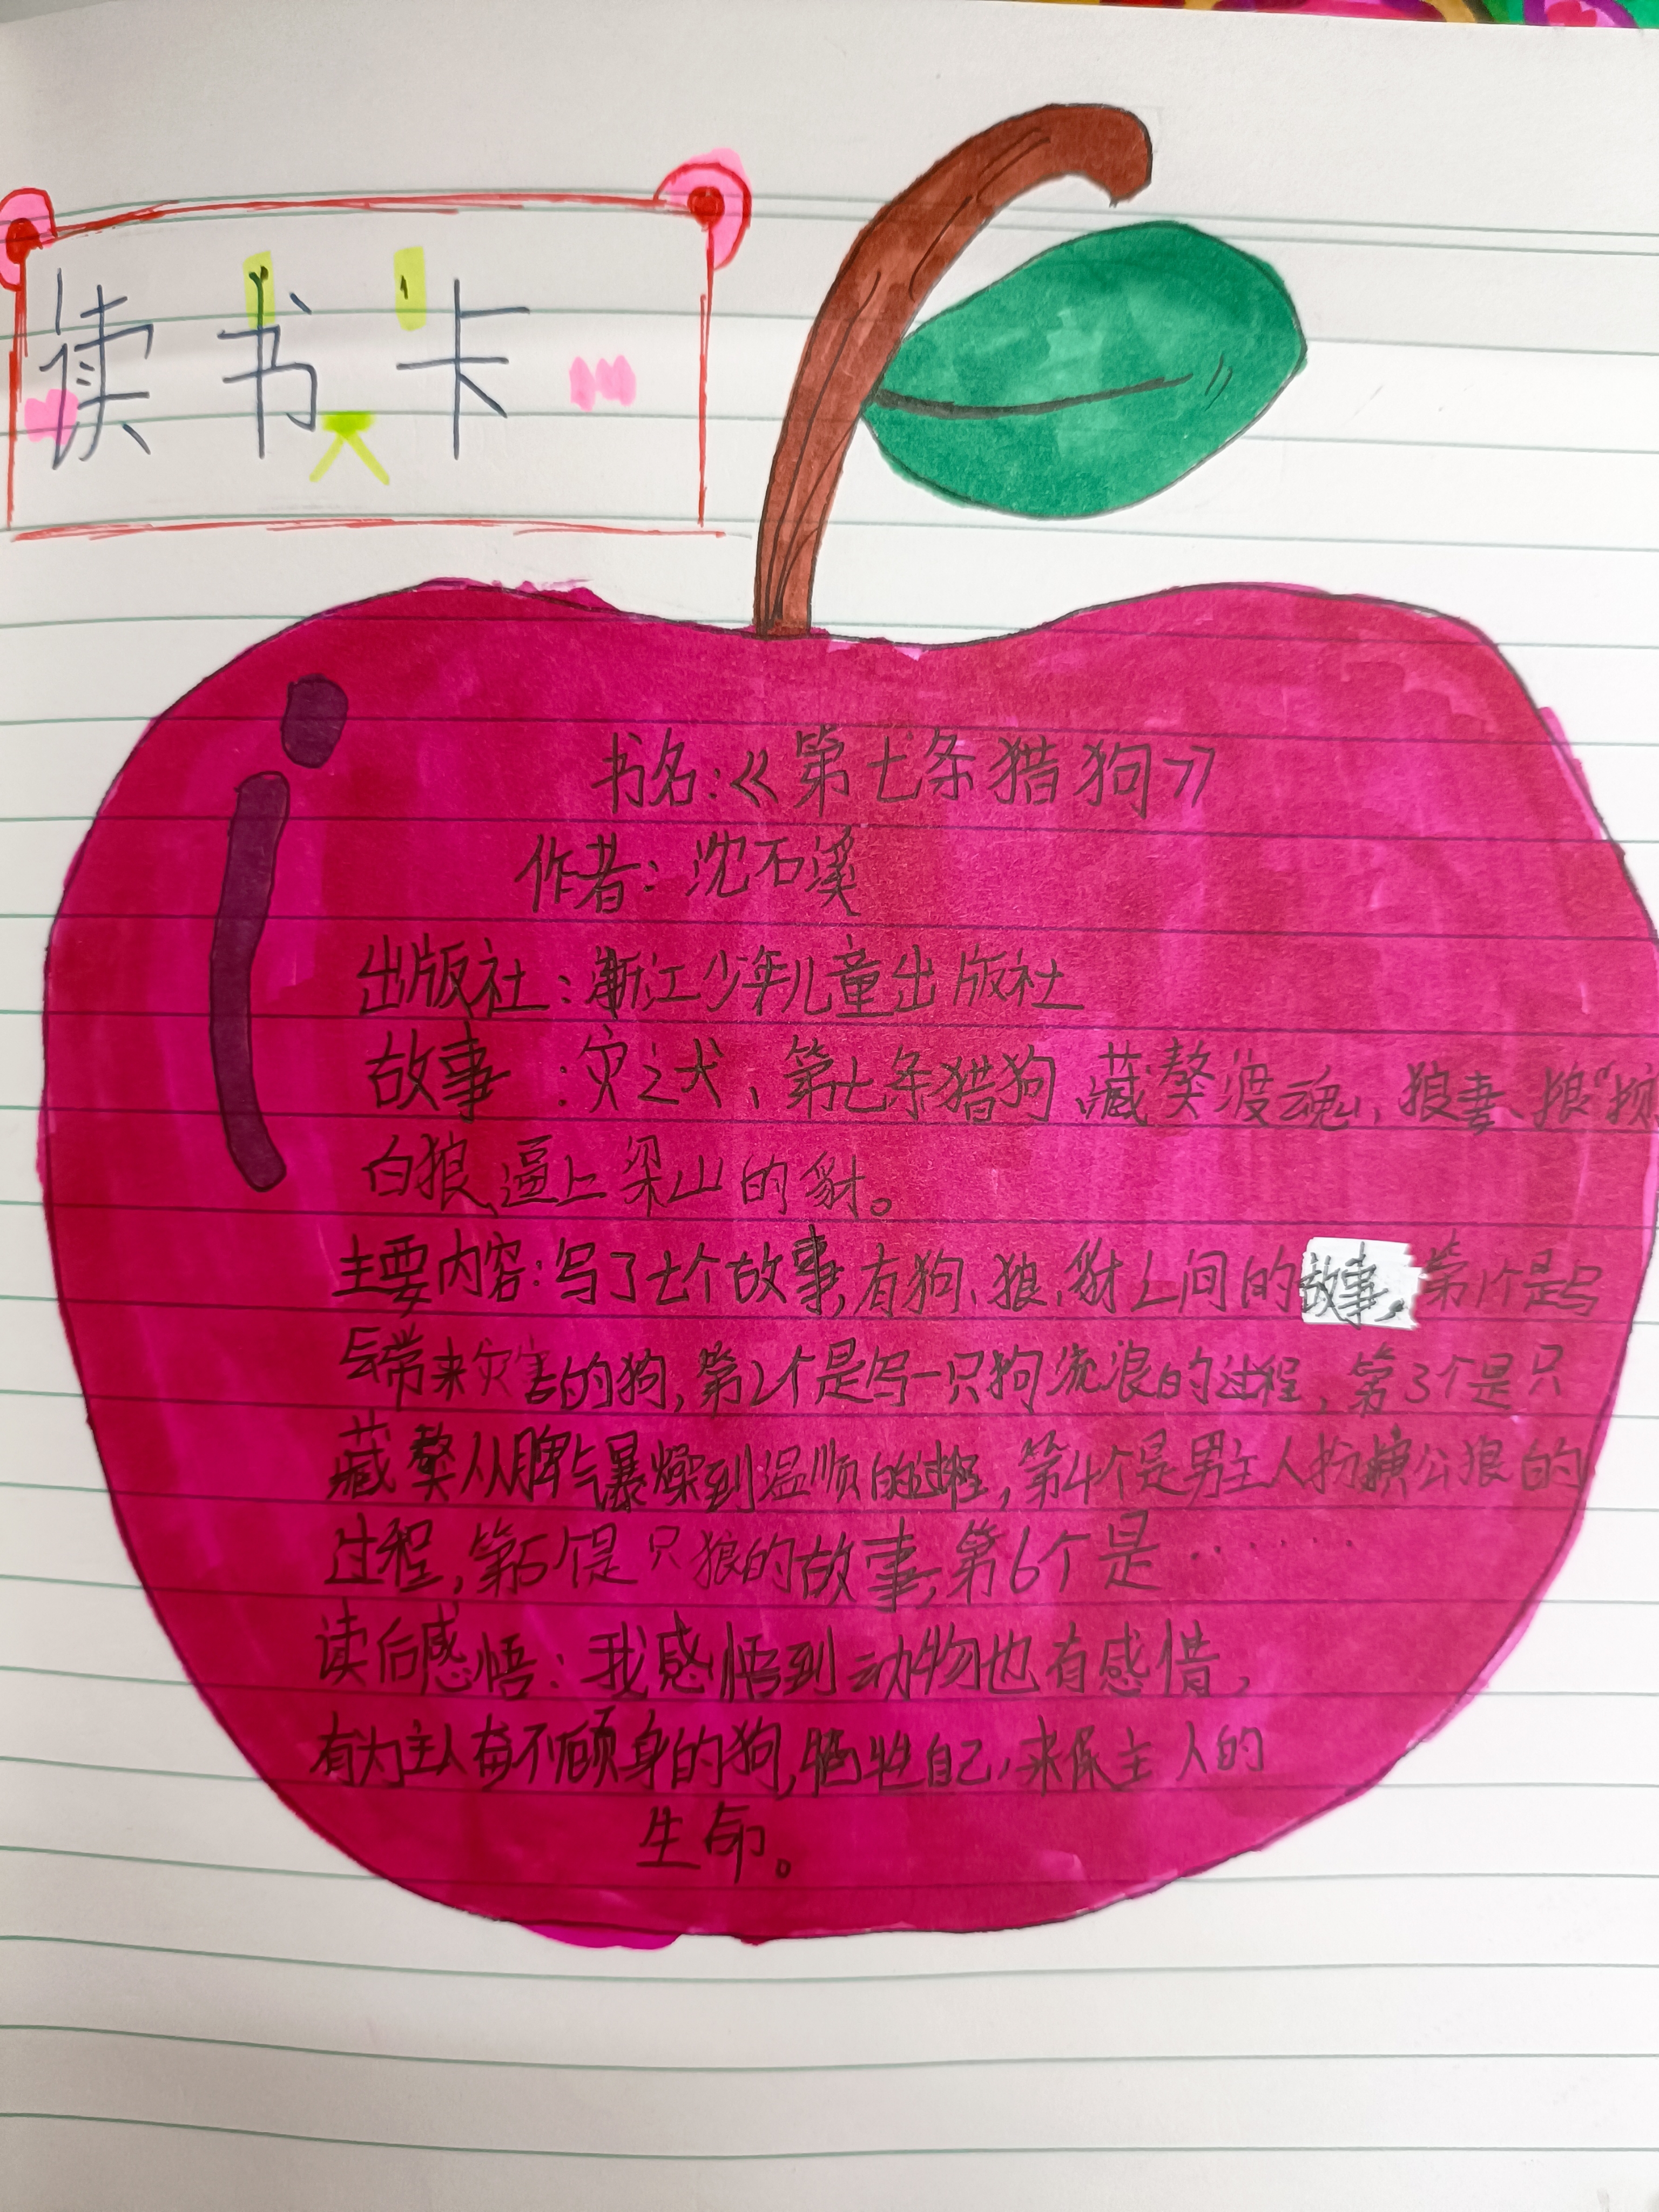 读书卡
书名:《第七条猎狗》
作者:沈石溪
出版社:浙江少年儿童出版社
故事:灾之犬、第七条猎狗、藏獒渡魂、狼妻、狼"
白狼、逼上梁山的豺。
主要内容:写了七个故事,有狗、狼、豺之间的故事,第1个是写
会带来灾害的狗,第2个是写一只狗流浪的过程,第3个是只
藏獒从脾气暴燥到温顺的过程,第4个是男主人扮演公狼的
过程,第5个是只狼的故事,第6个是……
读后感悟:我感悟到动物也有感情,
有为主人奋不顾身的狗,牺牲自己,来保主人的
生命。